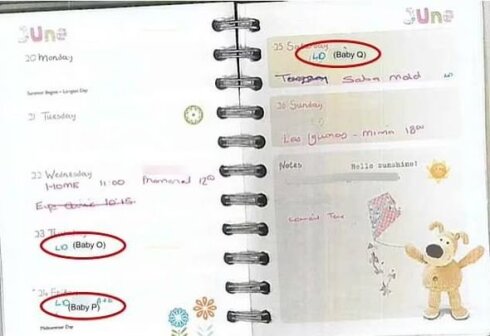 June
20 Monday
Summer Begins - Longest Day
21 Tuesday
22 Wednesday
HOME 11:00 Memorial 12:00
Eye Clinic 10:15
23 Thursday
LO (Baby O)
24 Friday
LO (Baby P)
Midsummer Day
June
25 Saturday
LO (Baby Q)
Salsa LO
26 Sunday
18:00
Notes
Hello sunshine!